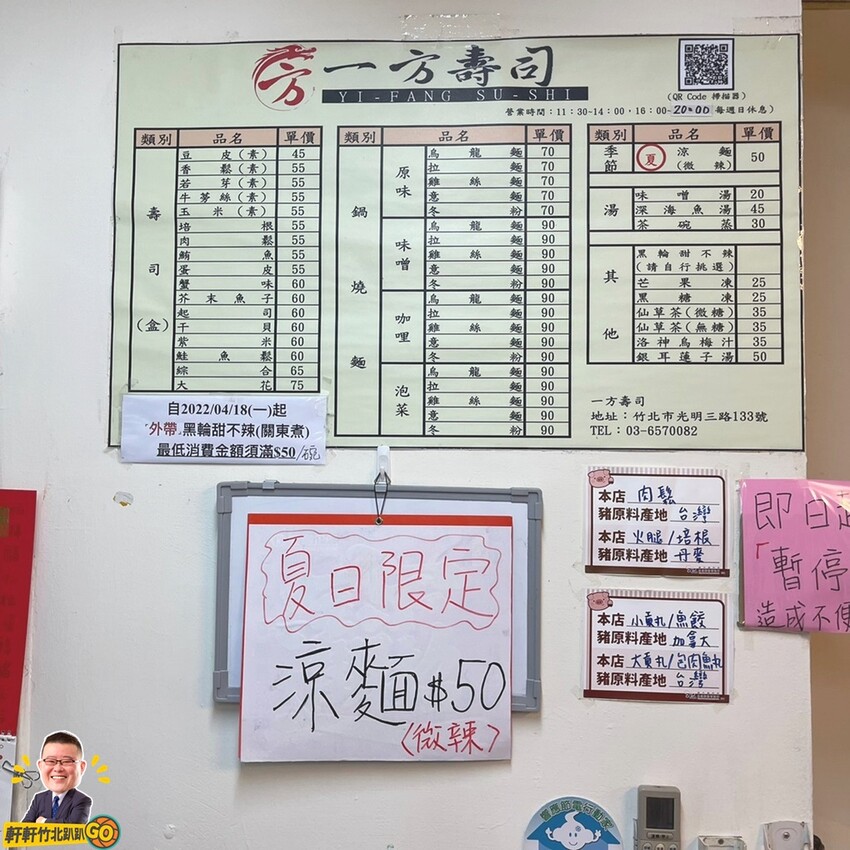 方 一方壽司
YI-FANG SU-SHI
(QR Code 掃描器)
營業時間：11：30~14：00，16：00~20:00(每週日休息)
類別 品名 單價
壽司(盒)
豆皮(素) 45
香鬆(素) 55
若芽(素) 55
牛蒡絲(素) 55
玉米(素) 55
培根 55
肉鬆 55
鮪魚 55
蛋皮 55
蟹味 60
芥末魚子 60
起司 60
干貝 60
紫米 60
鮭魚鬆 60
綜合 65
大花 75
類別 品名 單價
鍋燒麵
原味
烏龍麵 70
拉麵 70
雞絲麵 70
意麵 70
冬粉 70
味噌
烏龍麵 90
拉麵 90
雞絲麵 90
意麵 90
冬粉 90
咖哩
烏龍麵 90
拉麵 90
雞絲麵 90
意麵 90
冬粉 90
泡菜
烏龍麵 90
拉麵 90
雞絲麵 90
意麵 90
冬粉 90
類別 品名 單價
季節 夏 涼麵(微辣) 50
湯
味噌湯 20
深海魚湯 45
茶碗蒸 30
其他
黑輪甜不辣
(請自行挑選)
芒果凍 25
黑糖凍 25
仙草茶(微糖) 35
仙草茶(無糖) 35
洛神烏梅汁 35
銀耳蓮子湯 50
一方壽司
地址：竹北市光明三路133號
TEL：03-6570082
自2022/04/18(一)起
「外帶」黑輪甜不辣(關東煮)
最低消費金額須滿$50/碗
夏日限定
涼麵$50
〈微辣〉
本店 肉鬆
豬原料產地 台灣
本店 火腿/培根
豬原料產地 丹麥
本店 小貢丸/魚餃
豬原料產地 加拿大
本店 大貢丸/包肉魚丸
豬原料產地 台灣
即日起
「暫停
造成不便
響應節電行動家
軒軒竹北趴趴GO